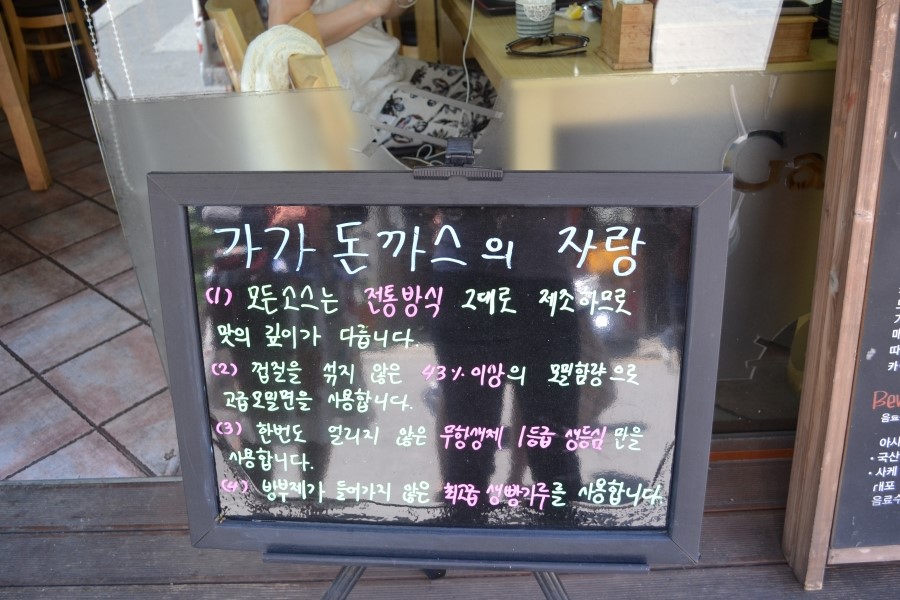 가가 돈까스의 자랑
(1) 모든소스는 전통방식 그대로 제조하므로
맛의 깊이가 다릅니다.
(2) 껍질을 섞지 않은 43% 이상의 모밀함량으로
고급모밀면을 사용합니다.
(3) 한번도 얼리지 않은 무항생제 1등급 생등심만을
사용합니다.
(4) 방부제가 들어가지 않은 최고급 생빵가루를 사용합니다.
Ga
음료
· 국산
· 사케
대포
음료수